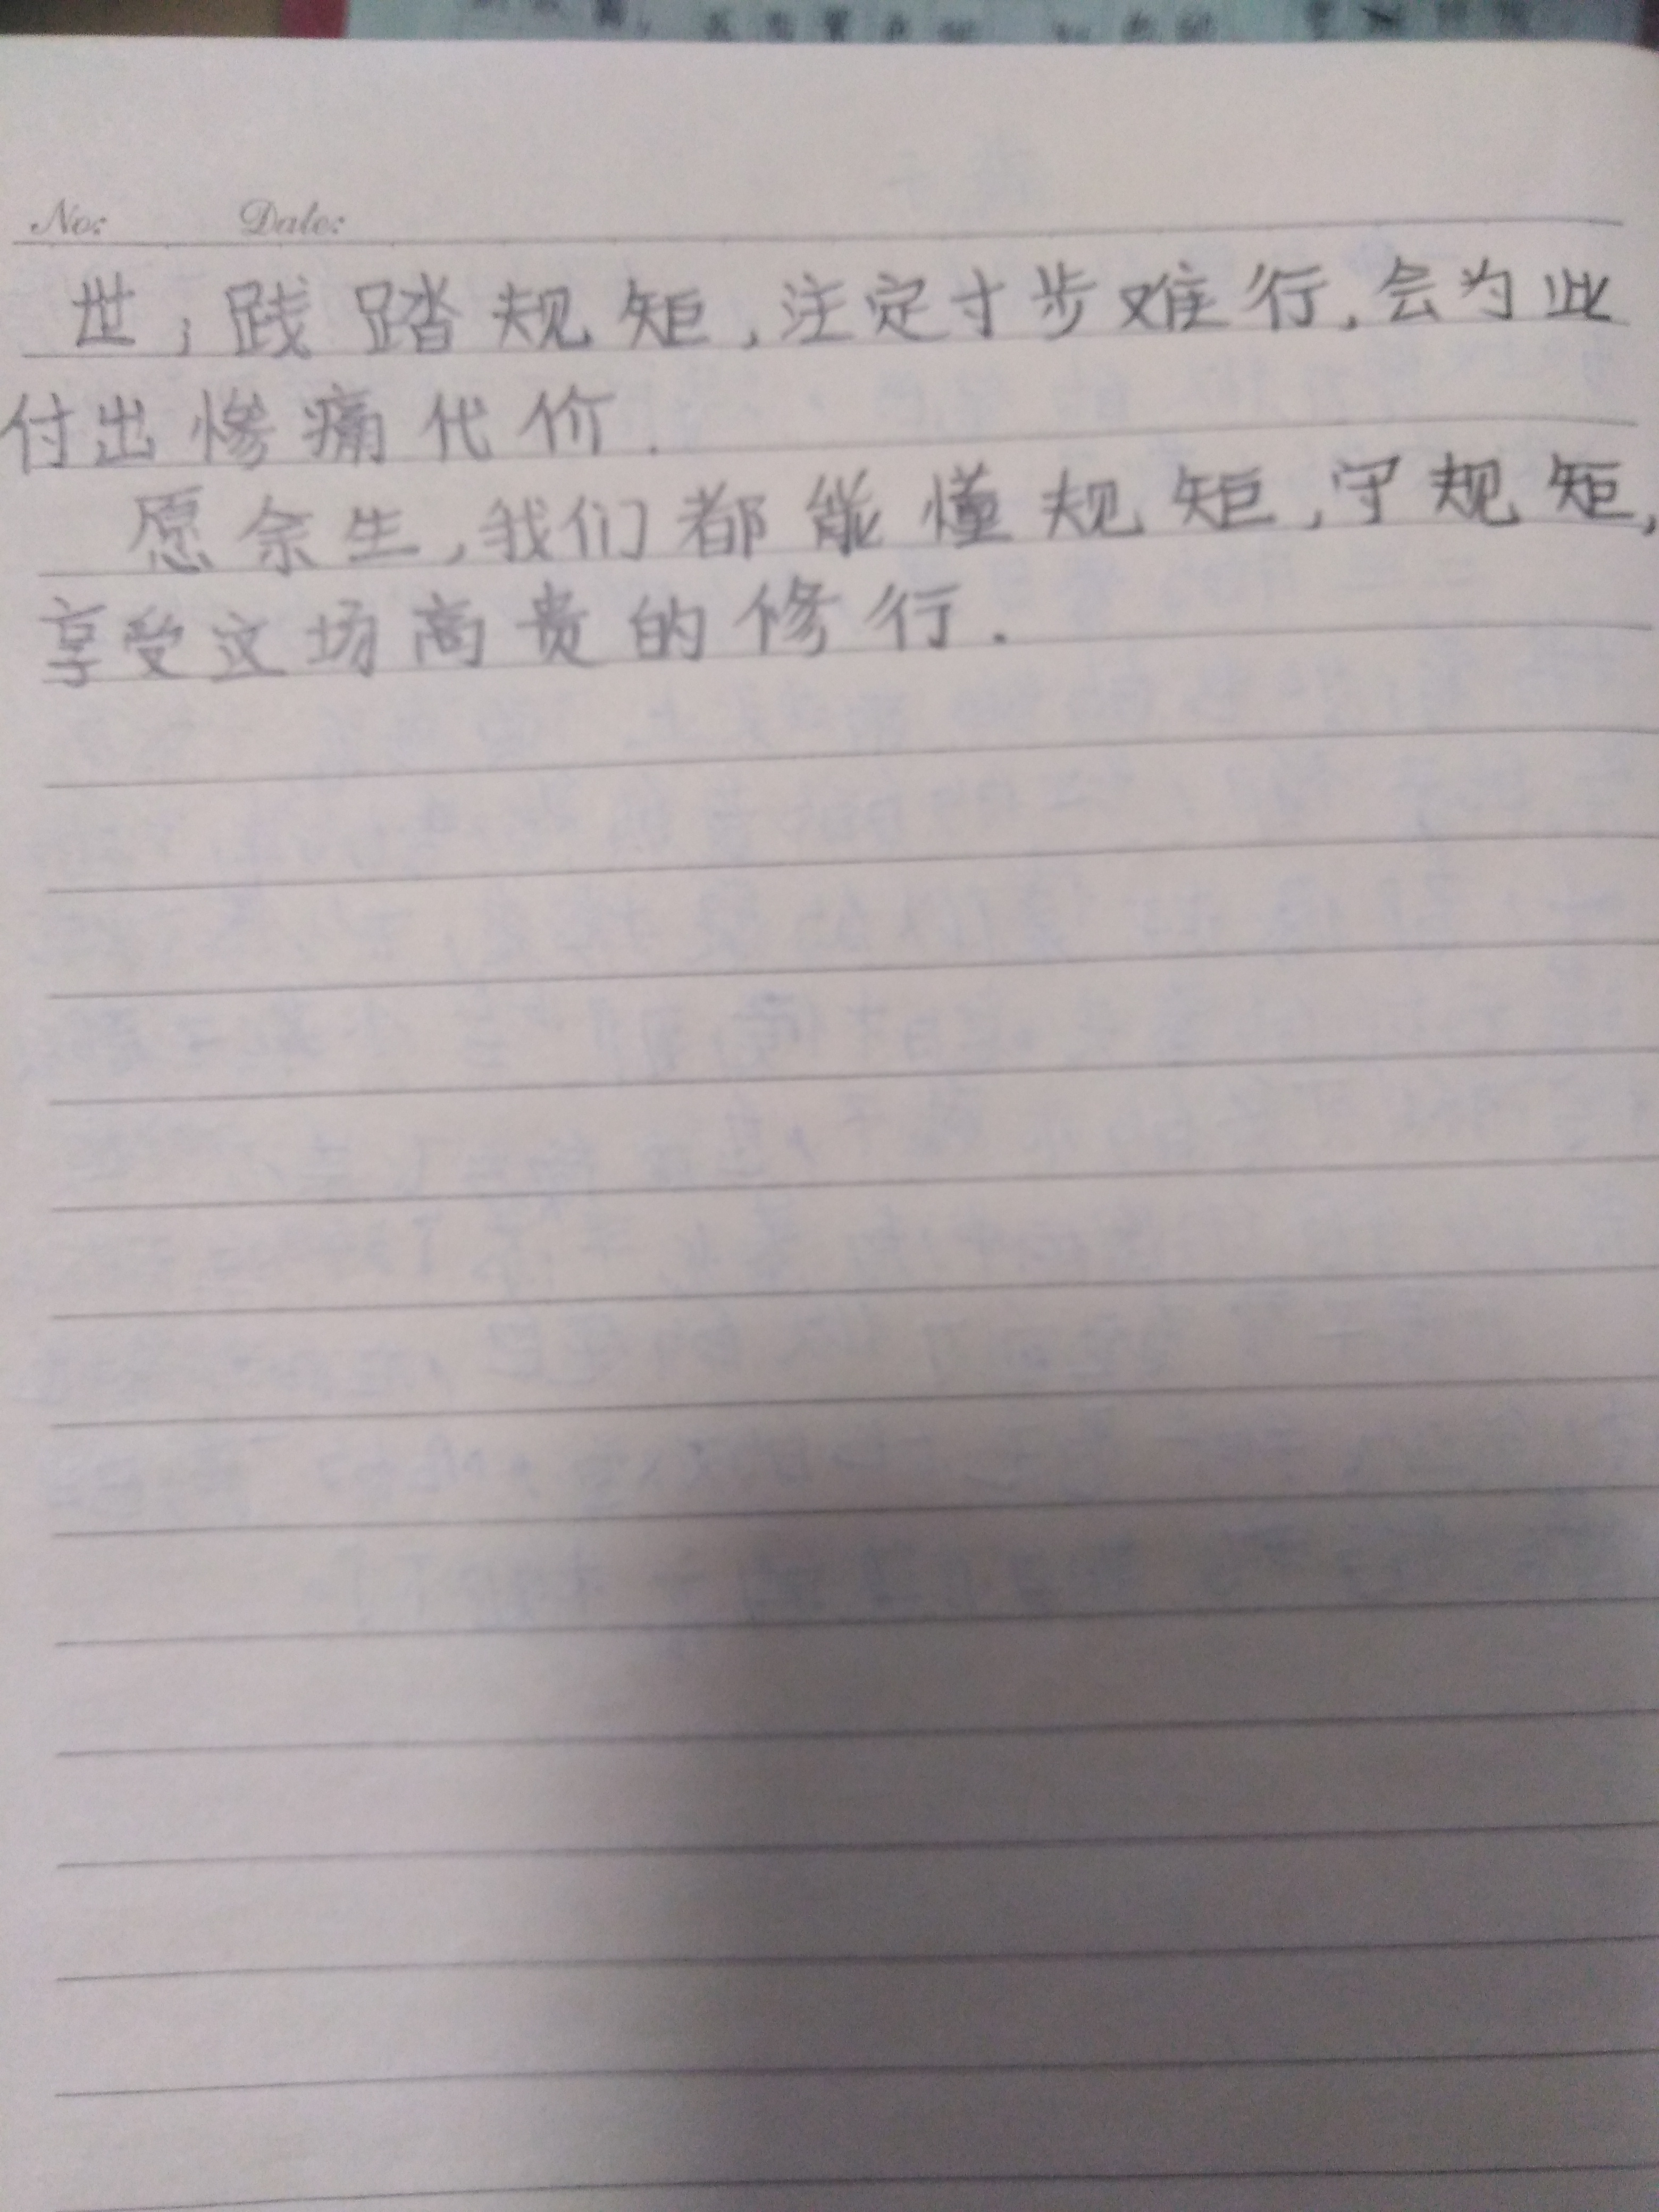 No: Date:
世；践踏规矩,注定寸步难行,会为此
付出惨痛代价.
愿余生,我们都能懂规矩,守规矩,
享受这场高贵的修行.